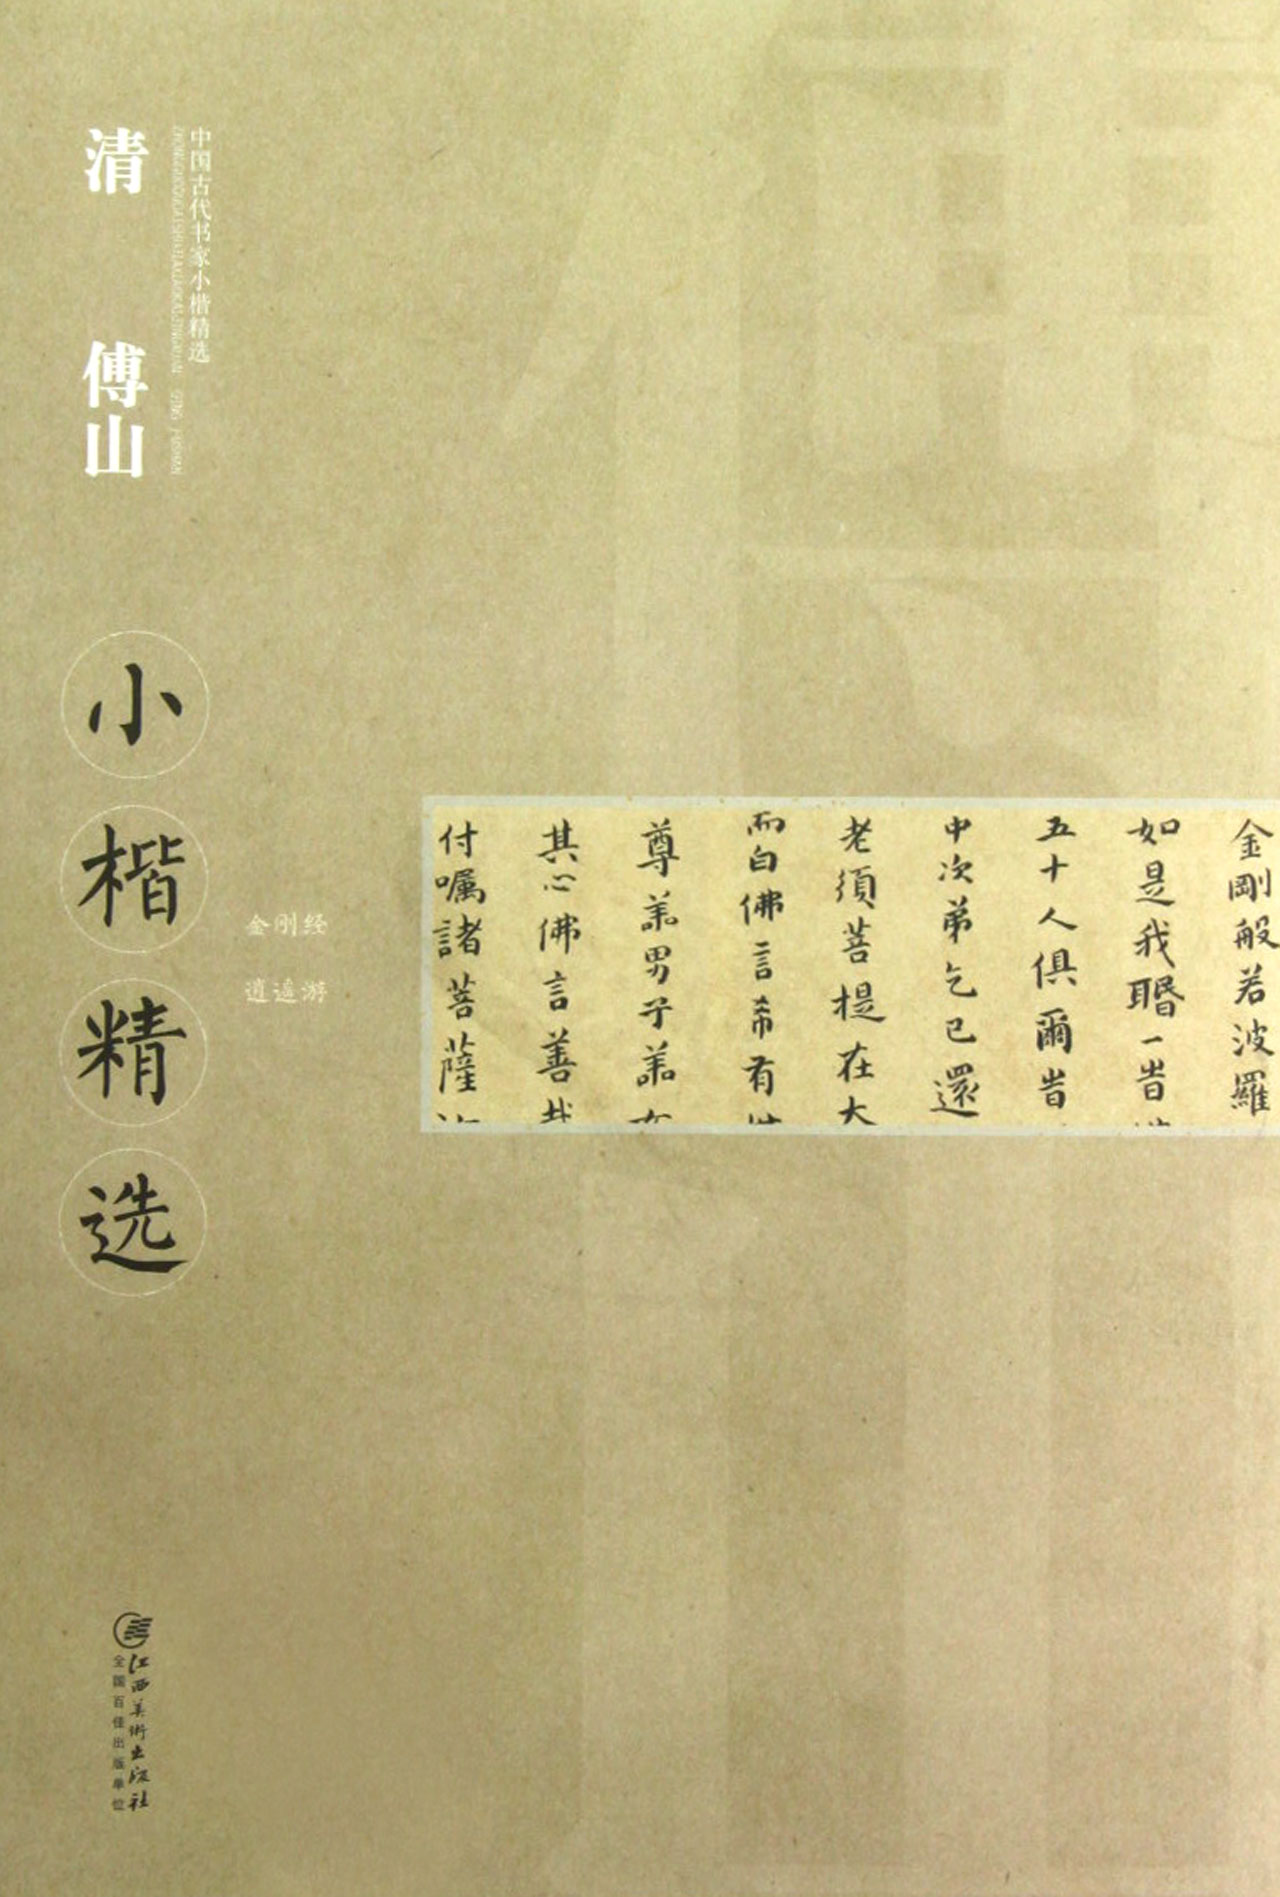 中国古代书家小楷精选
清 傅山
小楷精选
金刚经
逍遥游
金剛般若波羅
如是我聞一旹
五十人俱爾旹
中次弟乞已還
老須菩提在大
而白佛言希有
尊善男子善
其心佛言善哉
付囑諸菩薩
江西美術出版社
全国百佳出版单位